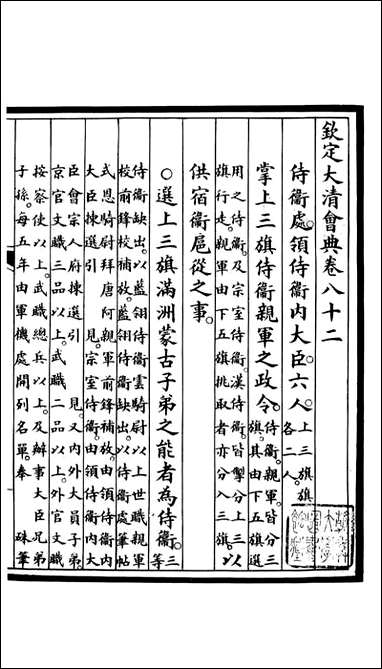 欽定大清會典卷八十二
侍衞處。領侍衞內大臣。六人。上三旗旗各二人。
掌上三旗侍衞親軍之政令。侍衞親軍。皆分上三旗。其由下五旗選
用之侍衞。及宗室侍衞。漢侍衞。皆掣分上三旗行走。親軍由下五旗挑取者。亦分入三旗。以
供宿衞扈從之事。
○選上三旗滿洲蒙古子弟之能者為侍衞。三等
侍衞缺出。以藍翎侍衞雲騎尉以上世職親軍校前鋒校補放。藍翎侍衞缺出。以侍衞處筆帖
式恩騎尉拜唐阿親軍前鋒補放。由領侍衞內大臣揀選引 見。宗室侍衞。由領侍衞內大
臣會宗人府揀選引 見。又內外大員子弟京官文職三品以上。武職二品以上。外官文職
按察使以上。武職總兵以上。及辦事大臣兄弟子孫。每五年由軍機處開列名單。奉 硃筆